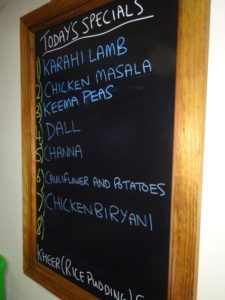 TODAY'S SPECIALS
1) KARAHI LAMB
2) CHICKEN MASALA
3) KEEMA PEAS
4) DALL
5) CHANNA
6) CAULIFLOWER AND POTATOES
7) CHICKEN BIRYANI
8)
KHEER (RICE PUDDING)